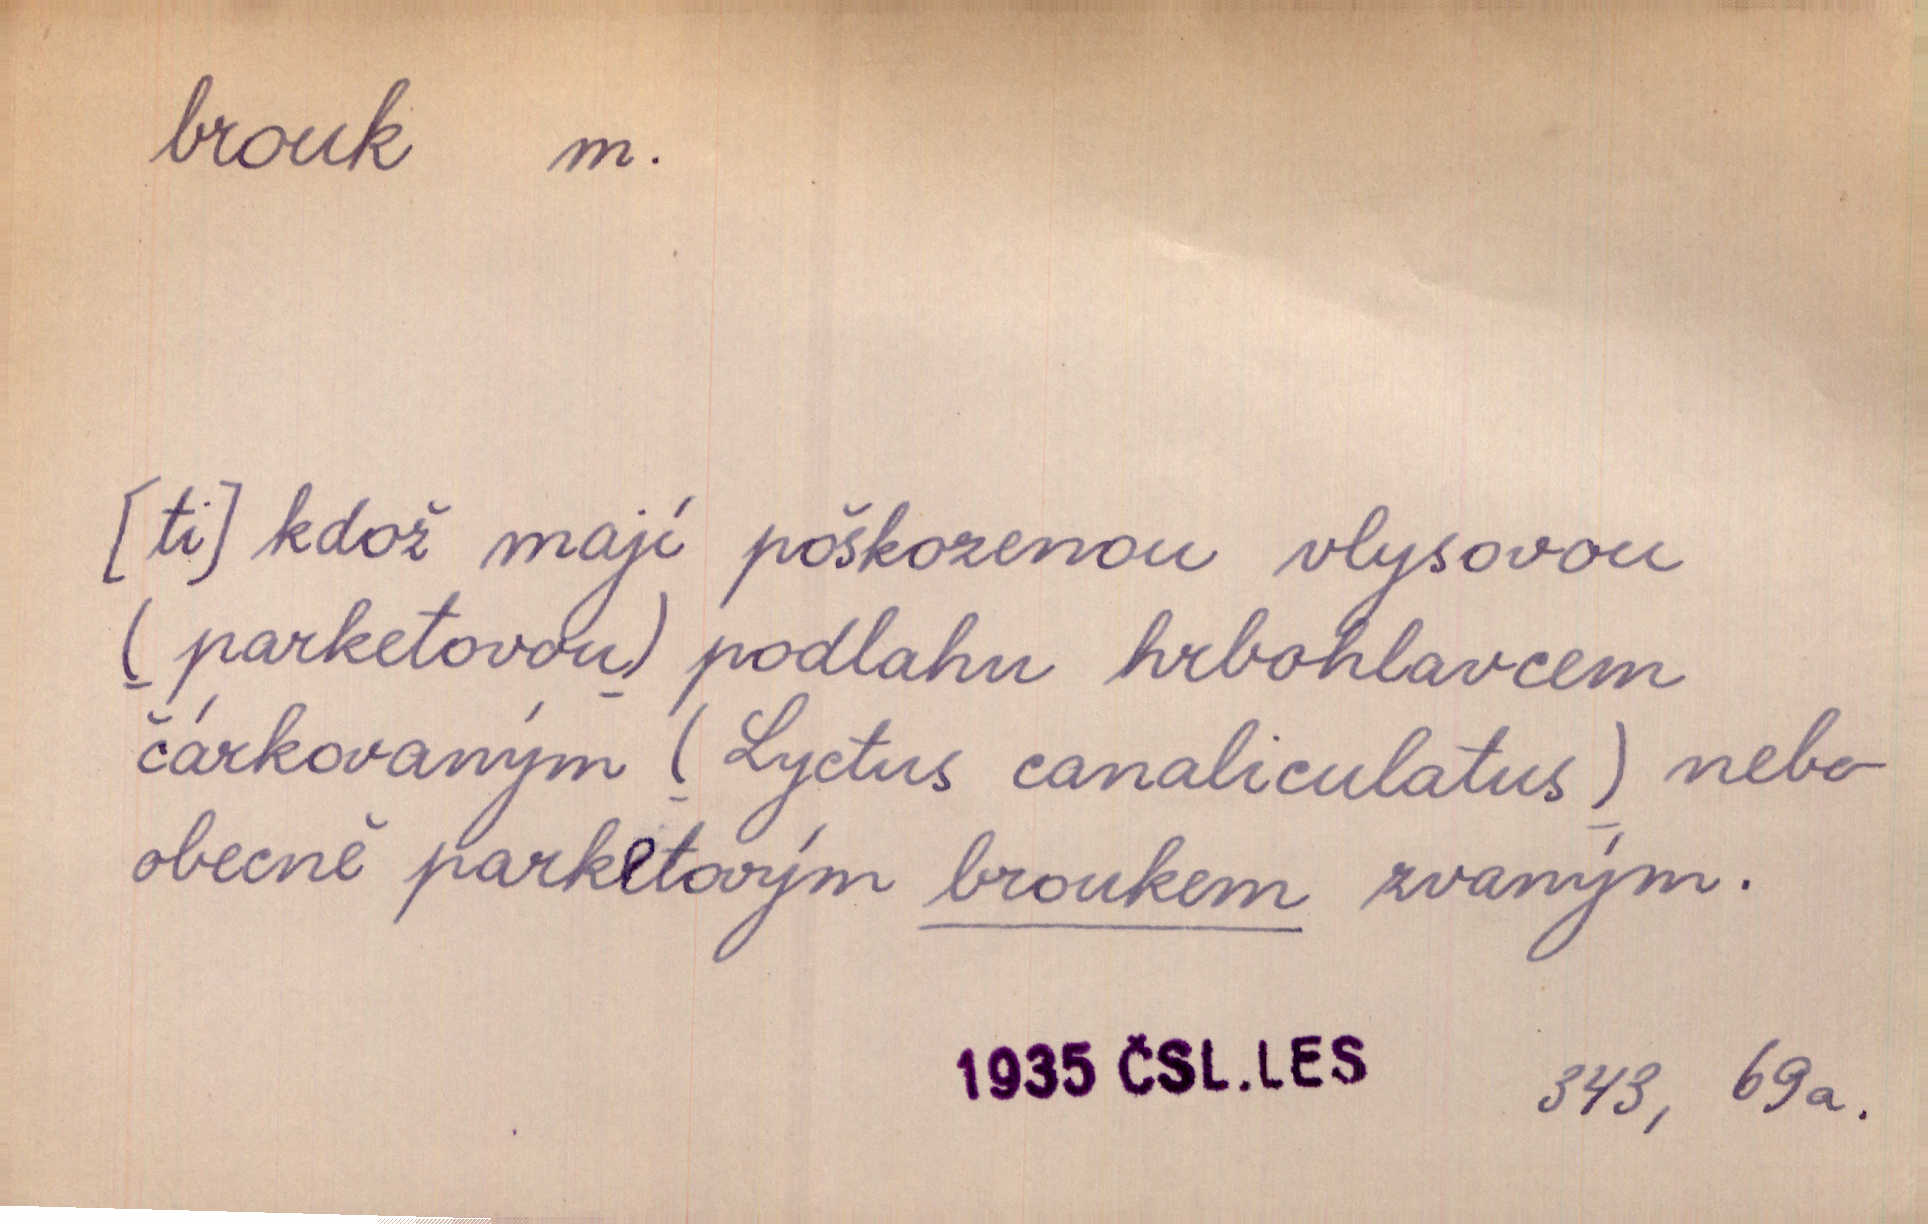 brouk m.
[ti] kdož mají poškozenou vlysovou
(parketovou) podlahu hrbohlavcem
čárkovaným (Lyctus canaliculatus) nebo
obecně parketovým broukem zvaným.
1935 ČSL.LES 343, 69a.